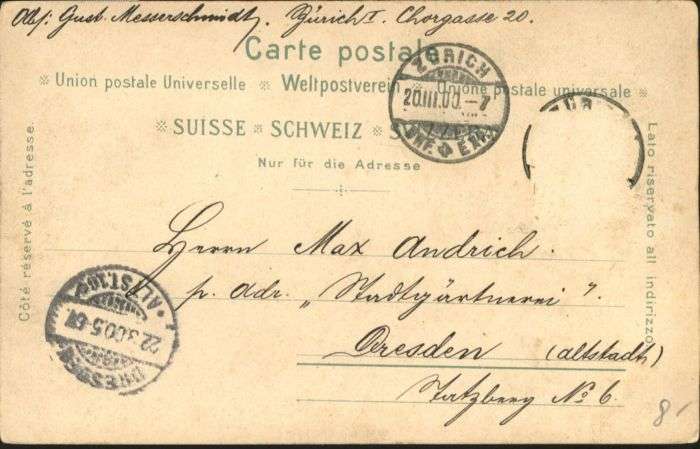 Abs: Gust. Messerschmidt, Zürich I. Chorgasse 20.
Carte postale
Union postale Universelle Weltpostverein Unione postale universale
SUISSE SCHWEIZ
Nur für die Adresse
Côté réservé à l'adresse.
Lato riservato all indirizzo
ZÜRICH
20.III.00.-7
Herrn Max Andrich.
p. Adr. „Stadtgärtnerei".
Dresden (altstadt)
Tatzberg No 6.
DRESDEN
ALTST.
22.3.00.
8